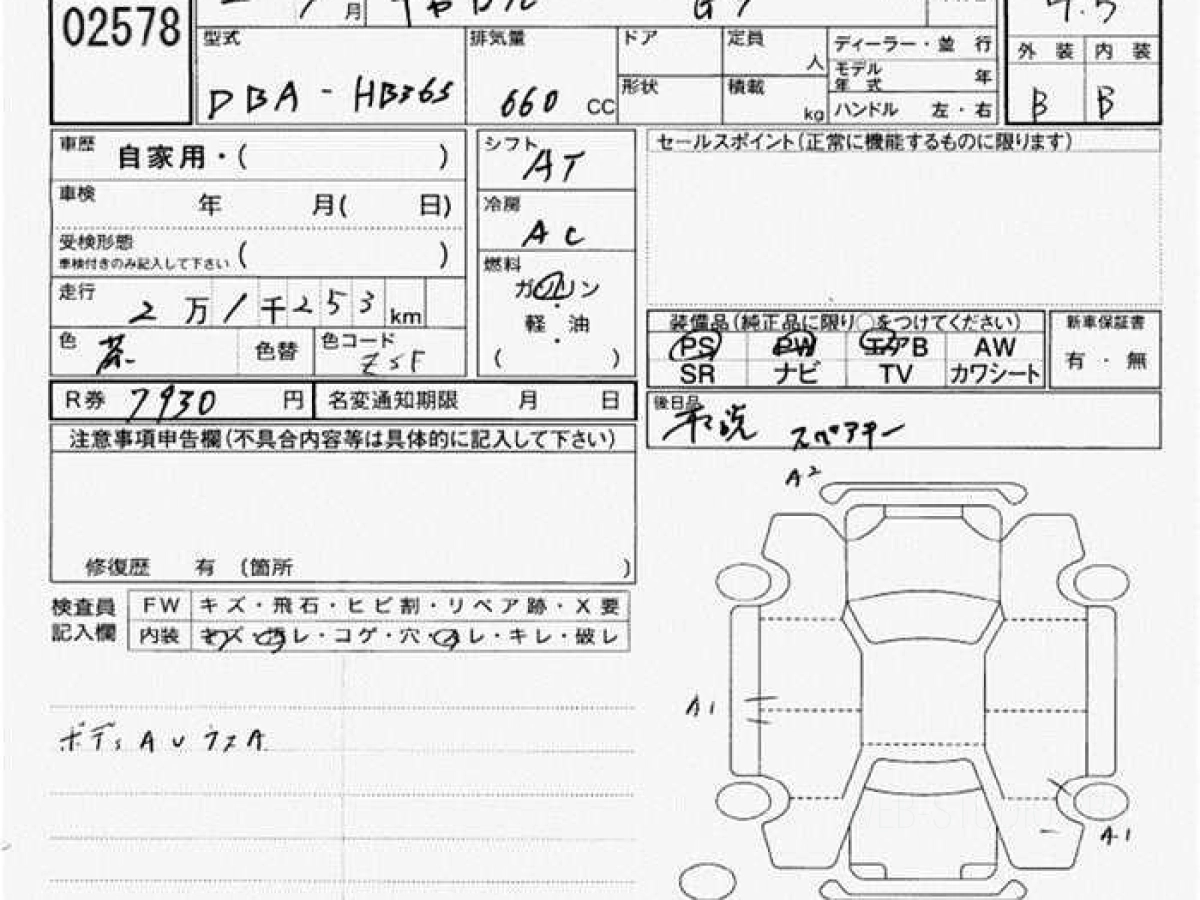 02578
月
型式 DBA-HB36S
排気量 660 CC
ドア
定員 人
形状
積載 kg
ディーラー・並 行
モデル年式 年
ハンドル 左・右
外 装 内 装
B B
車歴 自家用・( )
車検 年 月( 日)
受検形態 ( )
車検付きのみ記入して下さい
走行 2 万 1 千 253 km
色 茶 色替 色コード ZSF
シフト AT
冷房 AC
燃料
ガソリン
・
軽 油
・
( )
セールスポイント(正常に機能するものに限ります)
装備品(純正品に限り○をつけてください)
PS PW エアB AW
SR ナビ TV カワシート
新車保証書
有 ・ 無
R券 7930 円 名変通知期限 月 日
後日品 スペアキー
注意事項申告欄(不具合内容等は具体的に記入して下さい)
修復歴 有 (箇所 )
検査員記入欄
FW キズ・飛石・ヒビ割・リペア跡・X要
内装 キズ・汚レ・コゲ・穴・スレ・キレ・破レ
A2
A1
A1